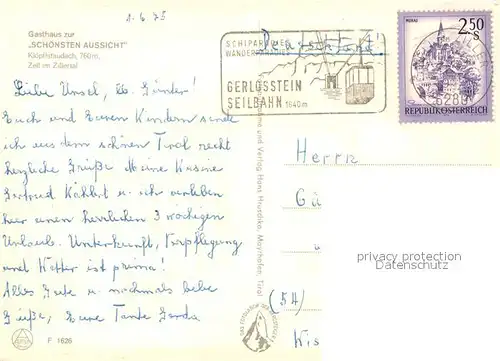 1.6.75
Gasthaus zur
„SCHÖNSTEN AUSSICHT"
Klöpflstaudach, 760m,
Zell im Zillertal
SCHIPARADIES
WANDERPARADIES
GERLOSSTEIN
SEILBAHN 1640m
MURAU
2.50
S
6280
REPUBLIK ÖSTERREICH
Liebe Ursel, lb. Günter!
Euch und Euren Kindern sende
ich aus dem schönen Tirol recht
herzliche Grüße. Meine Kusine
Gertrud u. ich verleben
hier einen herrlichen 3 wöchigen
Urlaub. Unterkunft, Verpflegung
und Wetter ist prima!
Alles Gute u. nochmals liebe
Grüße, Eure Tante Gerda
F 1626
und Verlag Hans Hruschka, Mayrhofen, Tirol
Herrn
Gü
(54)
privacy protection
Datenschutz